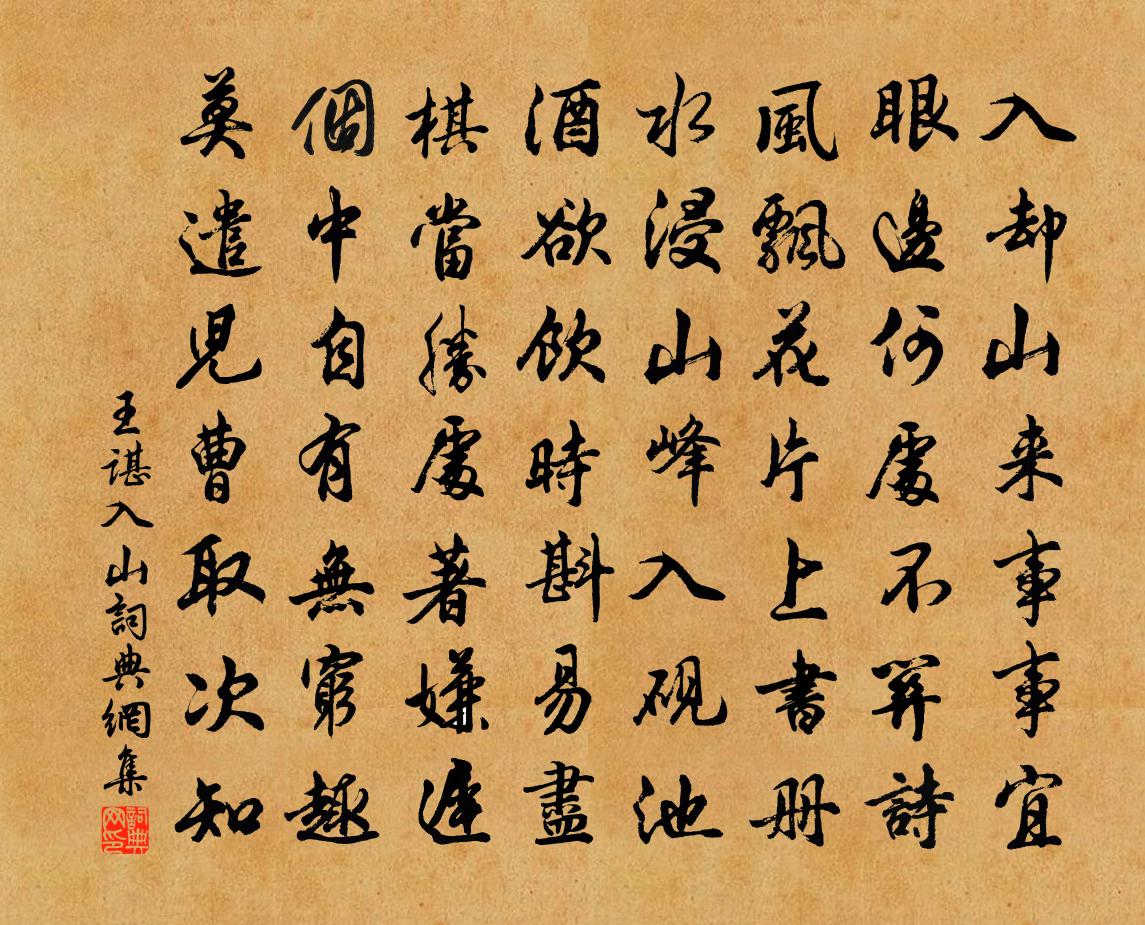 入却山来事事宜
眼邊何處不關詩
風飄花片上書冊
水浸山峰入硯池
酒欲飲時斟易盡
棋當勝處著嫌遲
個中自有無窮趣
莫遣兒曹取次知
王諶入山詞典網集
詞典网印